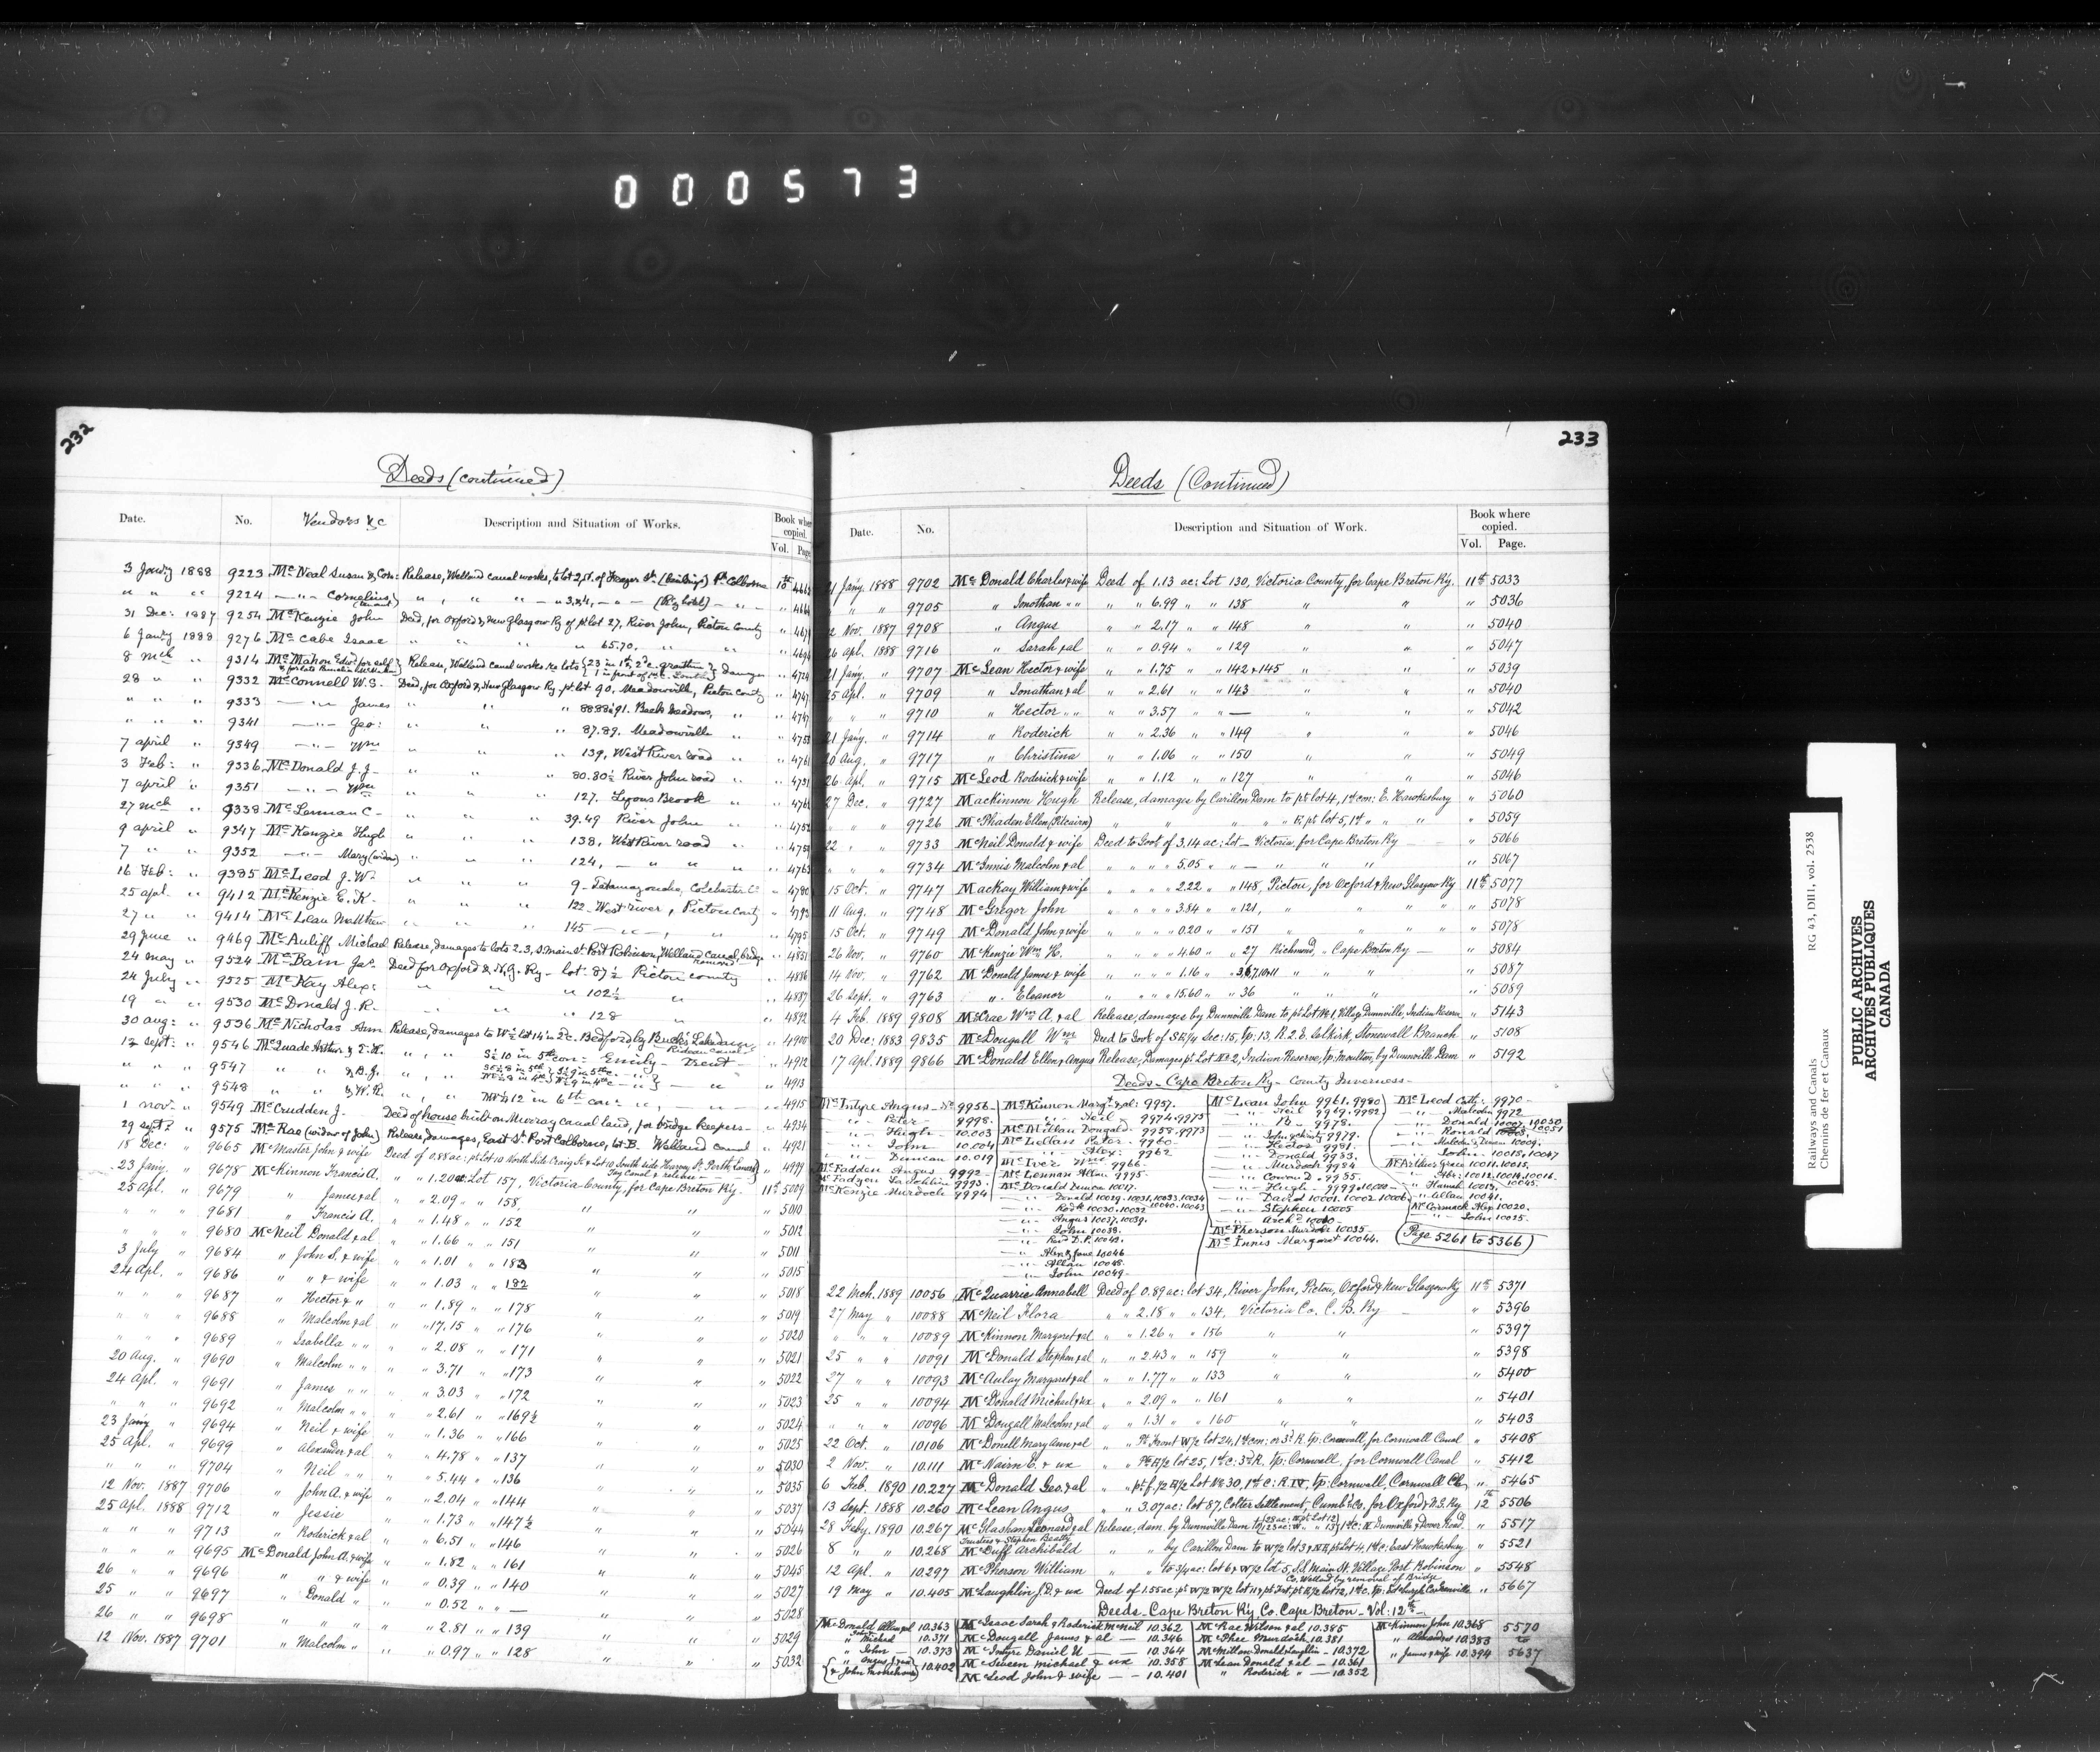 000573
232
Deeds (continued)
Date. No. Vendors &c Description and Situation of Works. Book where copied. Vol. Page
3 Jany 1888 9223 McNeal Susan & Con: Release, Welland canal works, to lot 2, of Frazer St. (buildings) Pt Colborne 10th
" " " 9224 —"— Cornelius (tenant) " " " " —" 3,&4, —"— (Ry hotel) —"— "
31 Dec: 1887 9254 McKenzie John Deed, for Oxford & New Glasgow Ry of pt lot 27, River John, Pictou County "
6 Jany 1888 9276 McCabe Isaac " " " " 65.70. " " "
8 Mch " 9314 McMahon Edwd for self Release, Welland canal works, re lots {23 in 1st & 2d c. Grantham} damages " 4724
28 " " 9332 McConnell W.S. Deed, for Oxford & New Glasgow Ry pt lot 90, Meadowville, Pictou County " 4747
" " " 9333 —"— James " " " 91. Back Meadows, " "
" " " 9341 —"— Geo: " " " 87.89. Meadowville " "
7 April " 9349 —"— Wm " " " 139, West River road " " 4761
3 Feb: " 9336 McDonald J.J. " " " 80.80½ River John road " " 4751
7 april " 9351 —"— Wm " " " 127. Lyons Brook " "
27 Mch " 9338 McLennan C— " " " 39.49 River John " " 4752
9 april " 9347 McKenzie Hugh " " " 138, West River road " "
7 " " 9352 —"— Mary (widow) " " " 124, — " " " " 4763
16 Feb: " 9385 McLeod J.W. " " " 9 - Tatamagouche, Colchester Co " 4780
25 apl. " 9412 McKenzie E.K. " " " 122 - West river, Pictou County " 4793
27 " " 9414 McLean Matthew " " " 145 —"— " " " 4795
29 June " 9469 McAuliff Michael Release, damages to lots 2.3, S. Main St. Port Robinson, Welland Canal, bridge removed " 4851
24 May " 9524 McBain Jas. Deed for Oxford & N.G. Ry - lot 87½ Pictou County " 4886
24 July " 9525 McKay Alex: " " " 102½ " " 4887
19 " " 9530 McDonald J.R. " " " 128 " " 4892
30 aug: " 9536 McNicholas Ann Release, damages to W½ lot 14 in 2 c. Bedford by Bucks Lake dam Rideau Canal " 4905
12 Sept: " 9546 McQuade Arthur & T.H. " " " S½ 10 in 5th con: Emily — Trent — " 4912
" " " 9547 " " & B.J. " " " S½ 8 in 5th & S½ 9 in 5th c. " 4913
" " " 9548 " " & W.R. " " " 12 in 6th con: " — " — " 4915
1 Nov. " 9549 McCrudden J. Deed of house built on Murray canal land, for bridge keepers— " 4934
29 Sept: " 9575 McRae (widow of John) Release, damages, East St. Port Colborne, lot B. Welland canal " 4921
18 Dec: " 9665 McMaster John & wife Deed of 0.88 ac: pt Lot 10 North Side Craig St & Lot 10 South side Harvey St. Perth, Lanark Tay Canal & release " 4999
23 Jany. " 9678 McKinnon Francis A. " " 1.20 ac: Lot 157, Victoria County, for Cape Breton Ry. 11th 5009
25 Apl. " 9679 " James & al " " 2.09 " " 158, " " " 5010
" " " 9681 " Francis A. " " 1.48 " " 152 " " " 5012
" " " 9680 McNeil Donald & al " " 1.66 " " 151 " " " 5011
3 July " 9684 " John S. & wife " " 1.01 " " 183 " " " 5015
24 Apl. " 9686 " " & wife " " 1.03 " " 182 " " " 5018
" " " 9687 " Hector & " " " 1.89 " " 178 " " " 5019
" " " 9688 " Malcolm & al " " 17.15 " " 176 " " " 5020
" " " 9689 " Isabella " " " " 2.08 " " 171 " " " 5021
20 Aug. " 9690 " Malcolm " " " " 3.71 " " 173 " " " 5022
24 Apl. " 9691 " James " " " " 3.03 " " 172 " " " 5023
" " " 9692 " Malcolm " " " " 2.61 " " 169½ " " " 5024
23 Jany " 9694 " Neil & wife " " 1.36 " " 166 " " " 5025
25 Apl. " 9699 " Alexander & al " " 4.78 " " 137 " " " 5030
" " " 9704 " Neil " " " " 5.44 " " 136 " " " 5035
12 Nov. 1887 9706 " John A. & wife " " 2.04 " " 144 " " " 5037
25 Apl. 1888 9712 " Jessie " " 1.73 " " 147½ " " " 5044
" " " 9713 " Roderick & al " " 6.51 " " 146 " " " 5026
" " " 9695 McDonald John A. & wife " " 1.82 " " 161 " " " 5045
26 " " 9696 " " & wife " " 0.39 " " 140 " " " 5027
25 " " 9697 " Donald " " " 0.52 " " — " " " 5028
26 " " 9698 " " " " " 2.81 " " 139 " " " 5029
12 Nov. 1887 9701 " Malcolm " " " 0.97 " " 128 " " " 5032
233
Deeds (Continued)
Date. No. Description and Situation of Work. Book where copied. Vol. Page.
21 Jany. 1888 9702 McDonald Charles & wife Deed of 1.13 ac: Lot 130, Victoria County for Cape Breton Ry. 11th 5033
" " " 9705 " Jonathan " " " " 6.99 " " 138 " " " 5036
12 Nov. 1887 9708 " Angus " " 2.17 " " 148 " " " 5040
26 Apl. 1888 9716 " Sarah & al " " 0.94 " " 129 " " " 5047
21 Jany. " 9707 McLean Hector & wife " " 1.75 " " 142 & 145 " " " 5039
25 Apl. " 9709 " Jonathan & al " " 2.61 " " 143 " " " 5040
" " " 9710 " Hector " " " " 3.57 " " — " " " 5042
21 Jany. " 9714 " Roderick " " 2.36 " " 149 " " " 5046
20 Aug. " 9717 " Christina " " 1.06 " " 150 " " " 5049
26 Apl. " 9715 McLeod Roderick & wife " " 1.12 " " 127 " " " 5046
27 Dec. " 9727 MacKinnon Hugh Release, damages by Carillon Dam to pt lot 4, 1st con: E. Hawkesbury " 5060
" " " 9726 McPhaden Ellen (Pitcairn) " " " " E. pt lot 5, 1st " " " " 5059
22 " " 9733 McNeil Donald & wife Deed to Govt of 3.14 ac: Lot — Victoria for Cape Breton Ry — " 5066
" " " 9734 McInnis Malcolm & al " " " " 5.05 " " — " " " " 5067
15 Oct. " 9747 MacKay William & wife " " " " 2.22 " " 148, Pictou, for Oxford & New Glasgow Ry 11th 5077
11 Aug. " 9748 McGregor John " " " " 3.84 " " 121, " " " " 5078
15 Oct. " 9749 McDonald John & wife " " " " 0.20 " " 151 " " " " 5078
26 Nov. " 9760 McKenzie Wm H. " " " " 4.60 " " 27 Richmond, " Cape Breton Ry — " 5084
14 Nov. " 9762 McDonald James & wife " " " " 1.16 " " " " " " 5087
26 Sept. " 9763 " Eleanor " " " " 15.60 " " 36 " " " " 5089
4 Feb. 1889 9808 McCrae Wm A. & al Release, damages by Dunnville Dam to pt Lot No 1 Village Dunnville, Indian Reserve " 5143
20 Dec: 1883 9835 McDougall Wm Deed to Govt of SE/4 Sec: 15, tp: 13, R. 2 E. Selkirk, Stonewall Branch " 5108
17 Apl. 1889 9866 McDonald Ellen & Angus Release, Damages pt Lot No 2, Indian Reserve, tp: Moulton, by Dunnville Dam " 5192
Deeds - Cape Breton Ry - County Inverness -
McIntyre Angus - No 9956 McKinnon Margt & al: 9957. McLean John 9961. 9980 McLeod Cath: 9970
—"— Peter 9998. —"— Neil - 9974.9975 —"— Neil 9969.9982 —"— Malcolm 9972
—"— Hugh - 10.003 McMillan Dougald - 9958.9973 —"— 9978. —"— Donald 10030
—"— John 10.004 McLellan Peter - 9960 —"— 9979. —"— Ronald
—"— Duncan 10.019 —"— Alex: 9962 —"— Hector 9981. —"— Malcolm & Duncan 10009.
McFadden Angus 9992 McIver 9966. —"— Donald 9983. —"— John - 10015, 10047
McFadyen Lachlin 9993 McLennan Allan 9995 —"— Murdoch 9984 McArthur Grace 10011.10013.
McKenzie Murdoch 9994 McDonald Duncan 10017. —"— 9985.
—"— Donald 10029. 10031, 10033, 10034 —"— Hugh - 9999. —"— Hamh 10013.
—"— Rodk 10030. 10032 10040. 10043 —"— David 10001. 10002 10006 —"— Allan 10041.
—"— Angus 10037. 10039. —"— Stephen 10005 McCormack Alex 10020.
—"— John 10038. —"— Archd —"— John 10025.
—"— D.P. 10042. McPherson Murdoch 10035 (Page 5261 to 5366)
—"— Alex & Jane 10046 McInnis Margaret 10044.
—"— Allan 10048
—"— John 10049
22 Mch. 1889 10056 McQuarrie Annabell Deed of 0.89 ac: lot 34, River John, Pictou, Oxford & New Glasgow Ry 11th 5371
27 May " 10088 McNeil Flora " " 2.18 " " 134, Victoria Co. C.B. Ry — " 5396
" " " 10089 McKinnon Margaret & al. " " 1.26 " " 156 " " " 5397
25 " " 10091 McDonald Stephen & al " " 2.43 " " 159 " " " 5398
27 " " 10093 McAulay Margaret & al " " 1.77 " " 133 " 5400
25 " " 10094 McDonald Michael & ux " " 2.09 " " 161 " " " 5401
" " " 10096 McDougall Malcolm & al " " 1.31 " " 160 " " " 5403
22 Oct. " 10106 McDonell Mary Ann & al " " Pt Front W/2 lot 24, 1st con: or 3d R. tp: Cornwall, for Cornwall Canal " 5408
2 Nov. " 10.111 McNairn C. & ux " " Pt E/2 lot 25, 1st C: 3rd R. tp: Cornwall, for Cornwall Canal " 5412
6 Feb. 1890 10.227 McDonald Geo. & al " " pt f. /2 E/2 Lot No 30, 1st C: R. IV, tp: Cornwall, Cornwall Cl. " 5465
13 Sept. 1888 10.260 McLean Angus " " 3.07 ac: lot 87, Colter Settlement, Cumb'd Co. for Oxford & N.G. Ry 12th 5506
28 Feby. 1890 10.267 McGlashan Leonard & al Release, dam. by Dunnville Dam to {28 ac: W pt Lot 12} {123 ac: W " " 13} 1st C: N. Dunnville & Dover Road. " 5517
Trustees & Stephen Beatty
8 " " 10.268 McDuff Archibald " " by Carillon Dam to W/2 lot 3 & N.E. pt lot 4, 1st C: East Hawkesbury " 5521
12 Apl. " 10.297 McPherson William " " to 3/4 ac: lot 6 & W/2 lot 5, S.S. Main St. Village Port Robinson " 5548
Co. Welland by removal of Bridge
19 May " 10.405 McLaughlin J.D. & ux Deed of 1.55 ac: pt W/2 W/2 lot 11 pt E/2 lot 12, 1st C. tp: Edwardsburgh Co Grenville " 5667
Deeds - Cape Breton Ry Co. Cape Breton - Vol: 12th -
McDonald Allan & al 10.363 McIsaac Sarah & Roderick McNeil 10.362 McRae Wilson & al 10.385 McKinnon John 10.368 5570
" Michael 10.371 McDougall James & al — 10.346 McPhee Murdoch 10.381 " Alexander 10.383 to
" John — 10.373 McIntyre Daniel U — 10.364 McMillan Donald & Laughlin - 10.372 " James & wife 10.394 5637
{" Angus & John Morrison} 10.402 McSween Michael & ux 10.358 McLean Donald & al — 10.361
McLeod John & wife — 10.401 " Roderick " — 10.352
Railways and Canals RG 43, DIII, vol. 2538
Chemins de fer et Canaux
PUBLIC ARCHIVES
ARCHIVES PUBLIQUES
CANADA